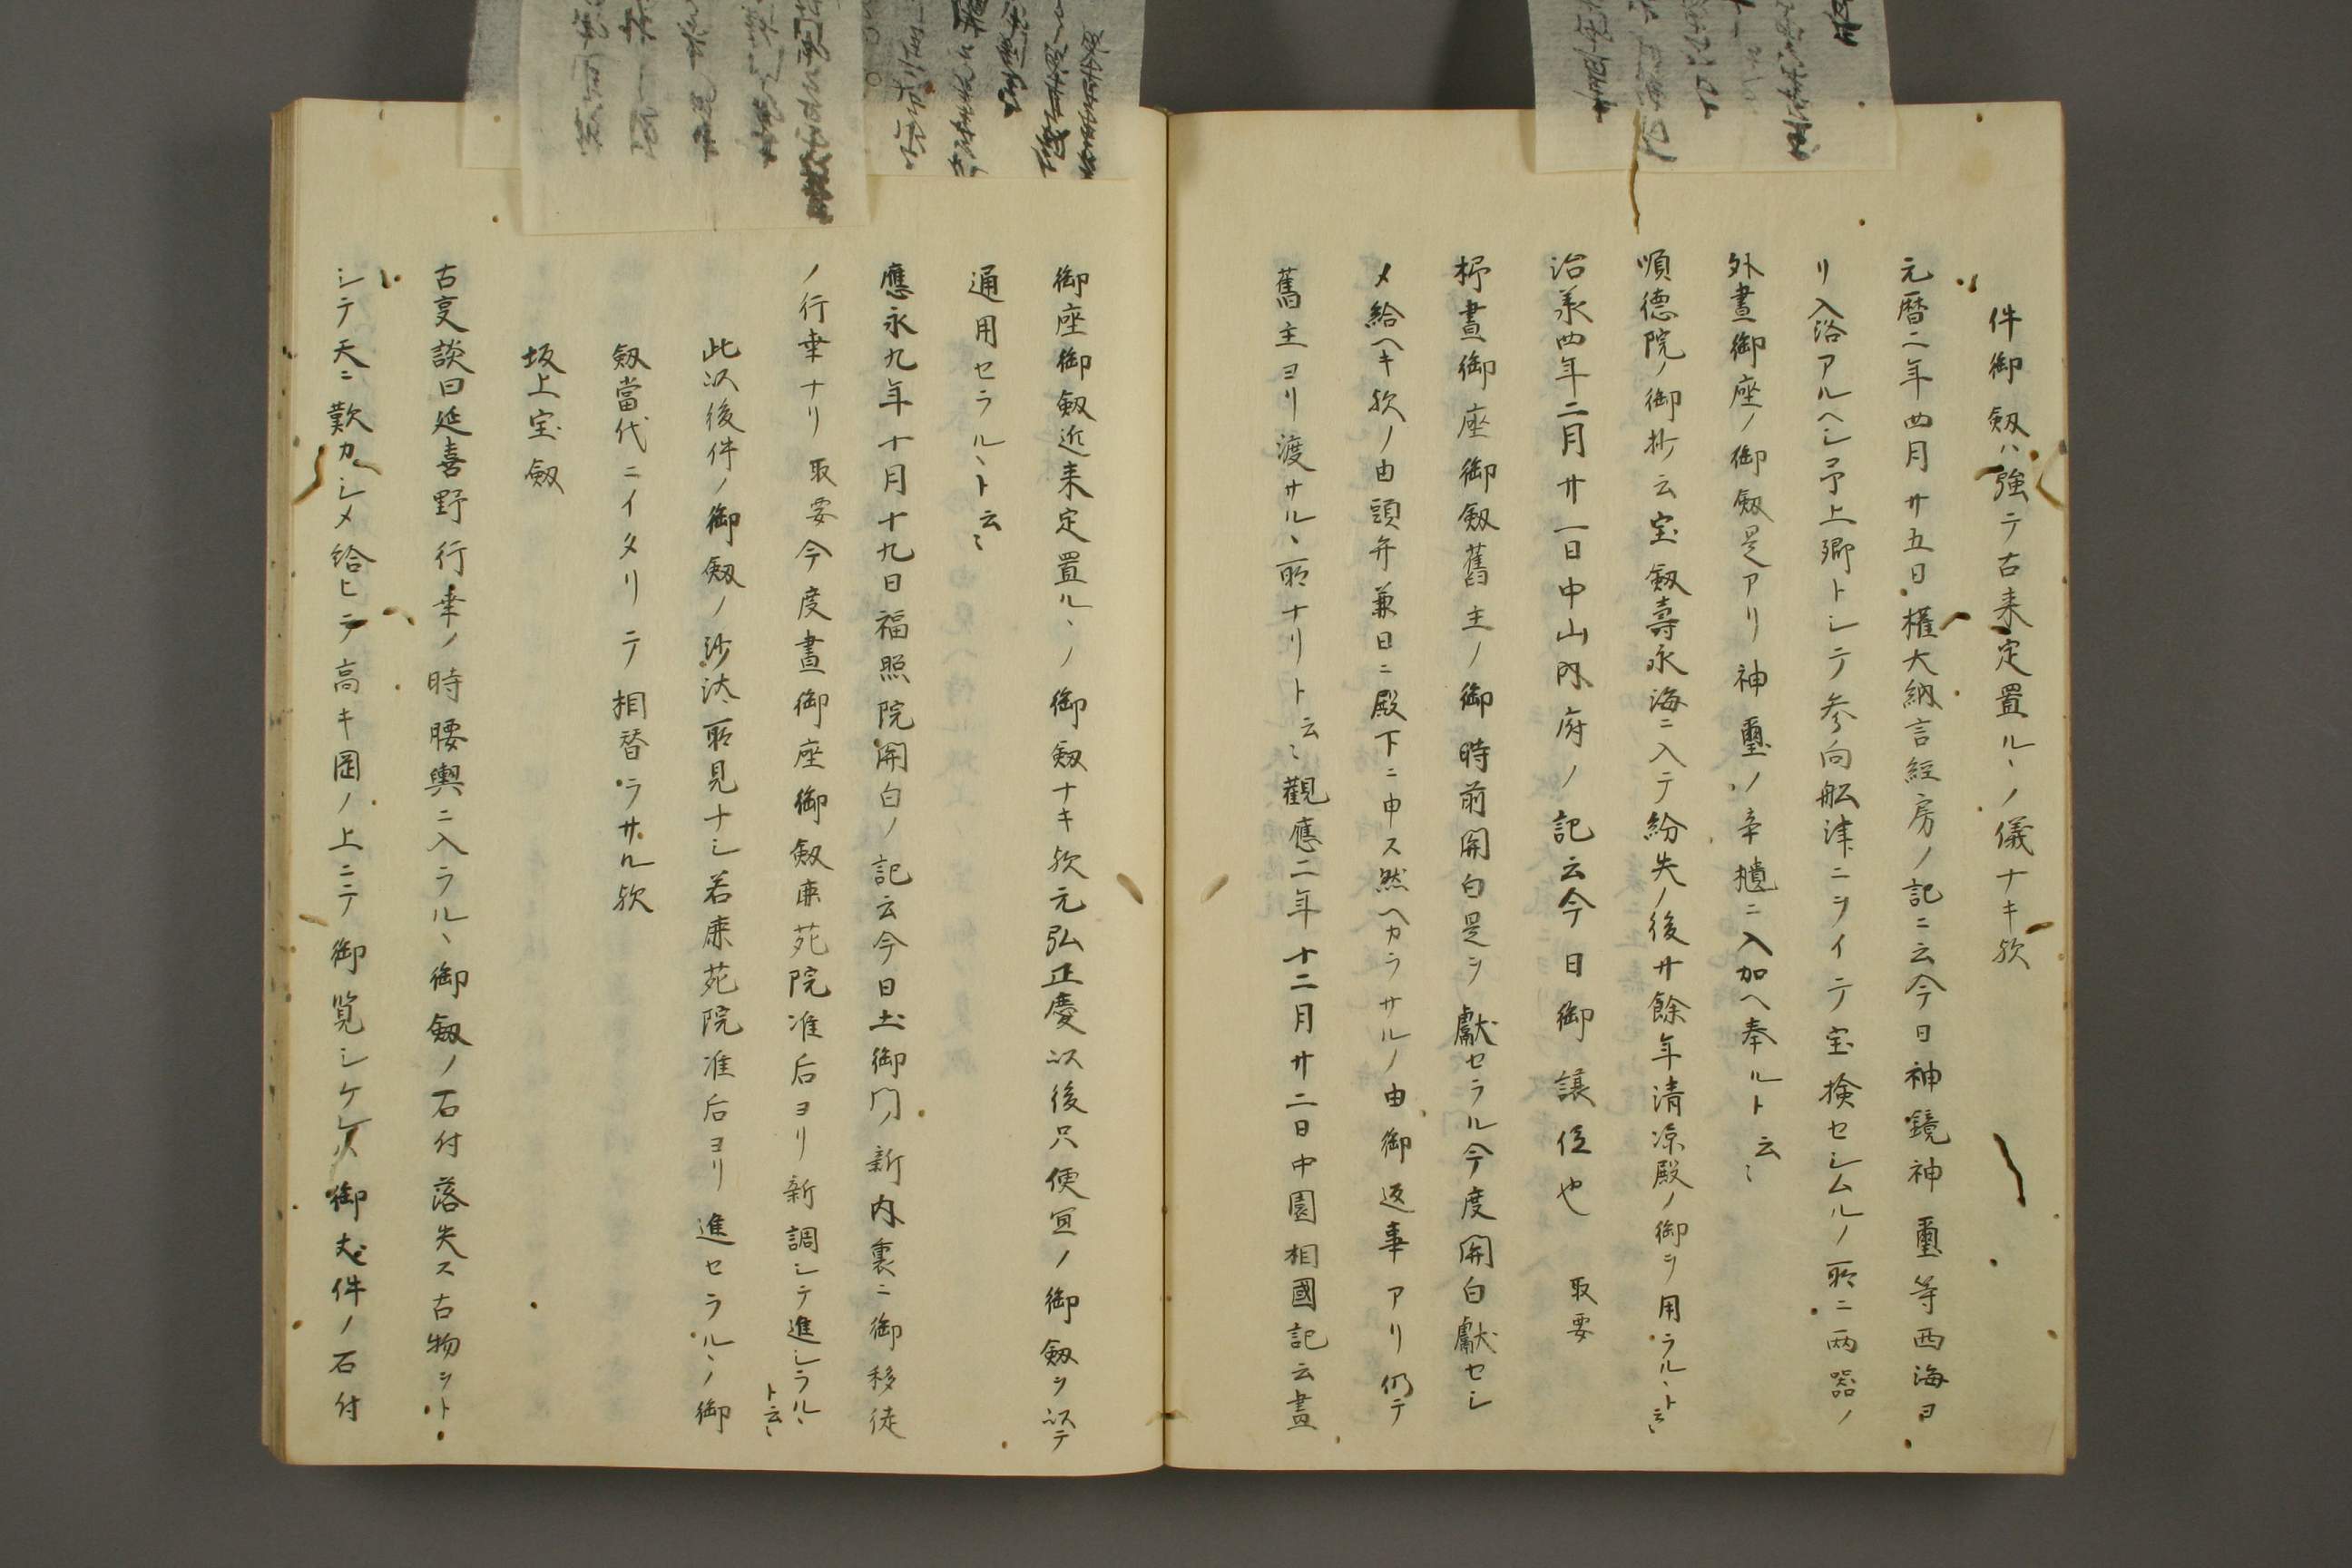 件御剱ハ強テ古来定置ルヽノ儀ナキ欤
元暦二年四月廿五日権大納言経房ノ記ニ云今日神鏡神璽等西海ヨ
リ入洛アルヘシ予上卿トシテ参向舩津ニヲイテ宝検セシムルノ所ニ両器ノ
外晝御座ノ御剱是アリ神璽ノ辛櫃ニ入加ヘ奉ルト云〻
順徳院ノ御抄云宝剱壽永海ニ入テ紛失ノ後廿餘年清凉殿ノ御ヲ用ラルヽト云〻
治承四年二月廿一日中山内府ノ記云今日御譲位也 取要
抑晝御座御剱舊主ノ御時前関白是ヲ獻セラル今度関白獻セシ
メ給ヘキ欤ノ由頭弁兼日ニ殿下ニ申ス然ヘカラサルノ由御返事アリ仍テ
舊主ヨリ渡サルヽ所ナリト云〻觀應二年十二月廿二日中園相國記云晝
御座御剱近来定置ルヽノ御剱ナキ欤元弘正慶以後只便宜ノ御剱ヲ以テ
通用セラルヽト云〻
應永九年十月十九日福照院関白ノ記云今日土御門新内裏ニ御移徙
ノ行幸ナリ 取要 今度晝御座御剱鹿苑院准后ヨリ新調シテ進シラルヽ
ト云〻
此以後件ノ御剱ノ沙汰所見ナシ若鹿苑院准后ヨリ進セラルヽノ御
剱當代ニイタリテ相替ラサル欤
坂上宝剱
古叓談曰延喜野行幸ノ時腰輿ニ入ラルヽ御剱ノ石付落失ス古物ヲト
シテ天ニ歎カシメ給ヒテ高キ岡ノ上ニテ御覧シケレハ御犬件ノ石付